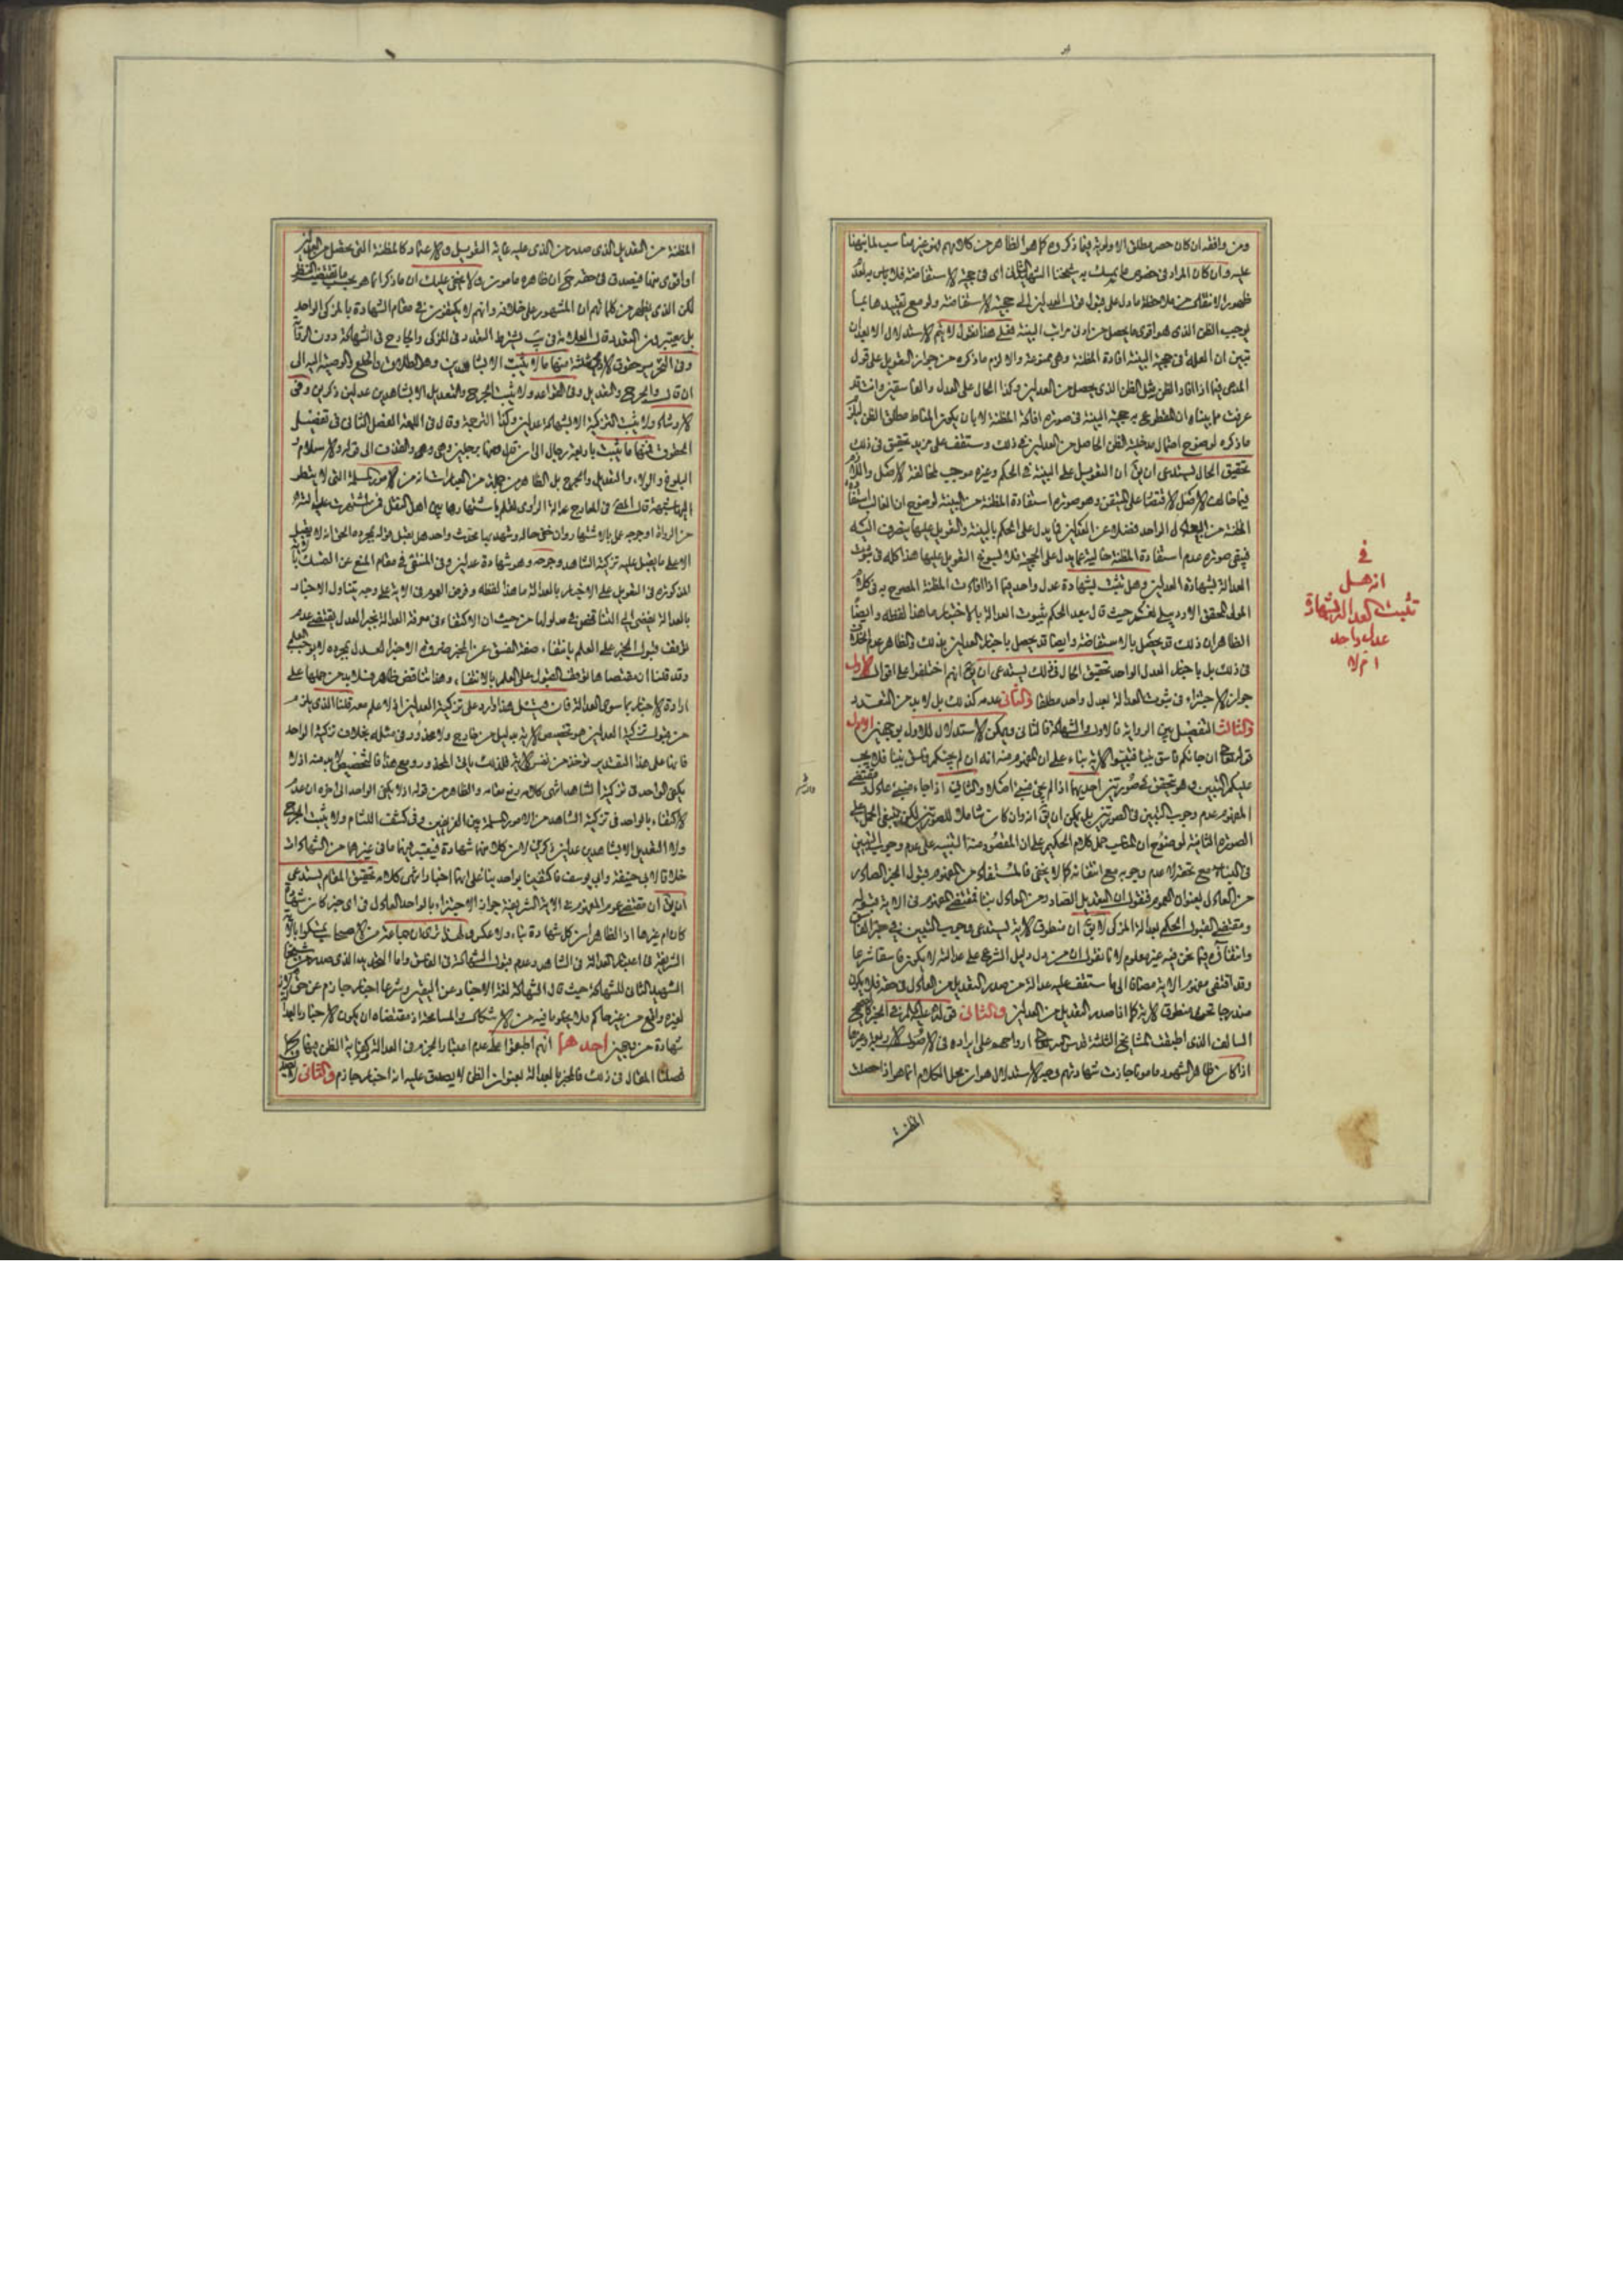 ومن وافقه ان كان حصر مطلق الاولوية فيما ذكروه كما هو الظاهر من كلامهم فهو غير مناسب لما نبهنا
عليه وان كان المراد في خصوص ما تمسك به شيخنا الشهيد الثاني اي في حجية الاستفاضة فلا باس به لعدم
ظهور الانفكاك من ملاحظة ما دل على قبول قول العدلين الى حجية الاستفاضة ولو مع تقييدها بما
يوجب الظن الذي هو اقوى مما يحصل من ادنى مراتب البينة فعلى هذا نقول لا يتم الاستدلال الا بعد ان
تبين ان العلة في حجية البينة افادة المظنة وهي ممنوعة والا لزم ما ذكره من جواز التعويل على قول
المدعي فيما اذا افاد الظن مثل الظن الذي يحصل من العدلين وكذا الحال على العدل والفاسقين وانت قد
عرفت ما بيناه ان المقطوع به حجية البينة في صورة افادة المظنة لا بان يكون المناط مطلق الظن
ما ذكره لوضوح احتمال مدخلية الظن الحاصل من العدلين في ذلك وستقف على مزيد تحقيق في ذلك
تحقيق الحال يستدعي ان يق ان التعويل على البينة في الحكم وغيره موجب لمخالفة الاصل واللازم
فيما خالف الاصل الاقتصار على المتيقن وهو صورة استفادة المظنة من البينة لوضوح ان الغالب استفادة
المظنة من العدل الواحد فضلا عن العدلين فما يدل على الحكم بالبينة والتعويل عليها ينصرف اليه
فيبقى صورة عدم استفادة المظنة خالية عما يدل على الحجية فلا يسوغ التعويل عليها هذا كله في ثبوت
العدالة بشهادة العدلين وهل تثبت بشهادة عدل واحد فيما اذا افادت المظنة المصرح به في كلام
المولى المحقق الاردبيلي نعم حيث قال بعد الحكم بثبوت العدالة بالاختبار ما هذا لفظه وايضا
الظاهر ان ذلك قد يحصل بالاستفاضة وايضا قد يحصل باخبار العدلين بذلك والظاهر عدم الخلاف
في ذلك بل باخبار العدل الواحد تحقيق الحال في ذلك يستدعي ان يق انهم اختلفوا على اقوال الاول
جواز الاجتزاء في ثبوت العدالة بعدل واحد مطلقا والثاني عدمه كذلك بل لا بد من التعدد
والثالث التفصيل بين الرواية فالاول والشهادة فالثاني ويمكن الاستدلال للاول بوجهين الاول
قوله تع ان جاءكم فاسق بنبأ فتبينوا الآية بناء على ان المفهوم منه انه ان لم يجئكم فاسق بنبأ فلا يجب
عليكم التبين وهو يتحقق في صورتين احديهما اذا لم يجئ منبئ اصلا والثانية اذا جاء منبئ عادل فمقتضى
المفهوم عدم وجوب التبين في الصورتين بل يمكن ان يق انه وان كان شاملا للصورتين لكن ينبغي الحمل على
الصورة الثانية لوضوح ان المناسب حمل كلام الحكيم على ان المقصود منه التنبيه على عدم وجوب التبين
في النبأ مع تحققه لا عدم وجوبه مع انتفائه كما لا يخفى فالمستفاد من المفهوم قبول الخبر الصادر
من العادل بعنوان العموم فنقول ان التعديل الصادر من العادل نبأ فمقتضى المفهوم في الآية قبوله
ومقتضى القبول الحكم بعدالة المزكى لا يق ان منطوق الآية يستدعي وجوب التبين في خبر الفاسق
وانتفاؤه فيما نحن فيه غير معلوم لانا نقول ان من دل دليل الشرع على عدالته لا يكون فاسقا شرعا
وقد اقتضى مفهوم الآية مضافا الى ما ستقف عليه عدالة من صدر التعديل من العادل في حقه فلا يكون
مندرجا تحت منطوق الآية كما اذا صدر التعديل من العدلين والثاني قوله عليه السلام في الخبر الصحيح
السالف الذي اطبقت المشايخ الثلثة قدس الله ارواحهم على ايراده في الاصول الاربعة وغيرها
اذا كان ظاهر الشهود مامونا جازت شهادتهم وجه الاستدلال هو ان محل الكلام انما هو اذا حصلت
المظنة
في
ان هل
تثبت العدالة بشهادة
عدل واحد
ام لا
المظنة من التعديل الذي صدر من الذي عليه غاية التعويل والاعتماد كالمظنة التي يحصل من العدلين
او اقوى منها فيصدق في حقه ح ان ظاهره مامون ولا يخفى عليك ان ما ذكر انما هو بحسب ما يقتضيه النظر
لكن الذي يظهر من كلماتهم ان المشهور على خلافه وانهم لا يكتفون في مقام الشهادة بالمزكي الواحد
بل يعتبرون التعدد قال العلامة في يب يشترط التعدد في المزكي والجارح في الشهادة دون الرواية
وفي التحرير حقوق الآدمي ثلثة منها ما لا يثبت الا بشاهدين وهو الطلاق والخلع والوصية اليه الى
ان قال والجرح والتعديل وفي القواعد ولا يثبت الجرح والتعديل الا بشاهدين عدلين ذكرين وفي
الارشاد ولا يثبت التزكية الا بشهادة عدلين وكذا الترجمة وقال في اللمعة الفصل الثاني في تفصيل
الحقوق فمنها ما يثبت باربعة رجال الى ان قال ومنها برجلين وهي الردة والقذف الى قوله والاسلام و
البلوغ والولاء والتعديل والجرح بل الظاهر من جملة من العبارات انه من الامور المسلمة التي لا يتطرق
اليها شبهة قال المحقق في المعارج عدالة الراوي تعلم باشتهارها بين اهل النقل فمن اشتهرت عدالته
من الرواة او جرحه عمل بالاشتهار وان خفي حاله وشهد بها محدث واحد هل يقبل قوله بمجرده الحق انه لا يقبل
الا على ما يقبل عليه تزكية الشاهد وجرحه وهو شهادة عدلين وفي المنتقى في مقام المنع عن التمسك بالآية
المذكورة في التعويل على الاخبار بالعدالة ما هذا لفظه وفرض العموم في الآية على وجه يتناول الاخبار
بالعدالة يفضي الى التناقض في مدلولها من حيث ان الاكتفاء في معرفة العدالة بخبر العدل يقتضي عدم
توقف قبول الخبر على العلم بانتفاء صفة الفسق عن المخبر ضرورة ان خبر العدل بمجرده لا يوجب العلم
وقد قلنا ان مقتضاها توقف القبول على العلم بالانتفاء وهذا تناقض ظاهر فلا بد من حملها على
ارادة الاخبار بما سوى العدالة فان قيل هذا وارد على تزكية العدلين اذ لا علم معه قلنا الذي يلزم
من قبول تزكية العدلين هو تخصيص الآية بدليل من خارج ولا محذور في مثله بخلاف تزكية الواحد
فانها على هذا التقدير تؤخذ من نفس الآية فلذلك ياتي المحذور ومع هذا فالتخصيص لا بد منه اذ لا
يكفي الواحد في تزكية الشاهد انتهى كلامه رفع مقامه والظاهر من قوله اذ لا يكفي الواحد الى آخره ان عدم
الاكتفاء بالواحد في تزكية الشاهد من الامور المسلمة بين الفريقين وفي كشف اللثام ولا يثبت الجرح
ولا التعديل الا بشاهدين عدلين ذكرين لان كلا منهما شهادة فيعتبر فيهما ما في غيرهما من الشهادات
خلافا لابي حنيفة وابي يوسف فاكتفيا بواحد بناء على انها اخبار انتهى كلامه تحقيق المقام يستدعي
ان يق ان مقتضى عموم المفهوم في الآية الشريفة جواز الاجتزاء بالواحد العادل في اي خبر كان شهادة
كان ام غيرها اذ الظاهر ان كل شهادة نبأ ولا عكس ولهذا ترى ان جماعة من الاصحاب تمسكوا بالآية
الشريفة في اعتبار العدالة في الشاهد وعدم قبول الشهادة في الفاسق واما التحديد الذي صدر من شيخنا
الشهيد الثاني للشهادة حيث قال الشهادة لغة الاخبار عن اليقين وشرعا اخبار جازم عن حق لازم
لغيره واقع من غير حاكم فلا يخلو ما فيه من الاشكال والمسامحة اذ مقتضاه ان لا يكون الاخبار بالعدالة
شهادة من وجهين احدهما انهم اطبقوا على عدم اعتبار الجزم في العدالة كفاية الظن فيها كما
فصلنا المقال في ذلك فالمخبر بالعدالة بعنوان الظن لا يصدق عليه انه اخبار جازم والثاني